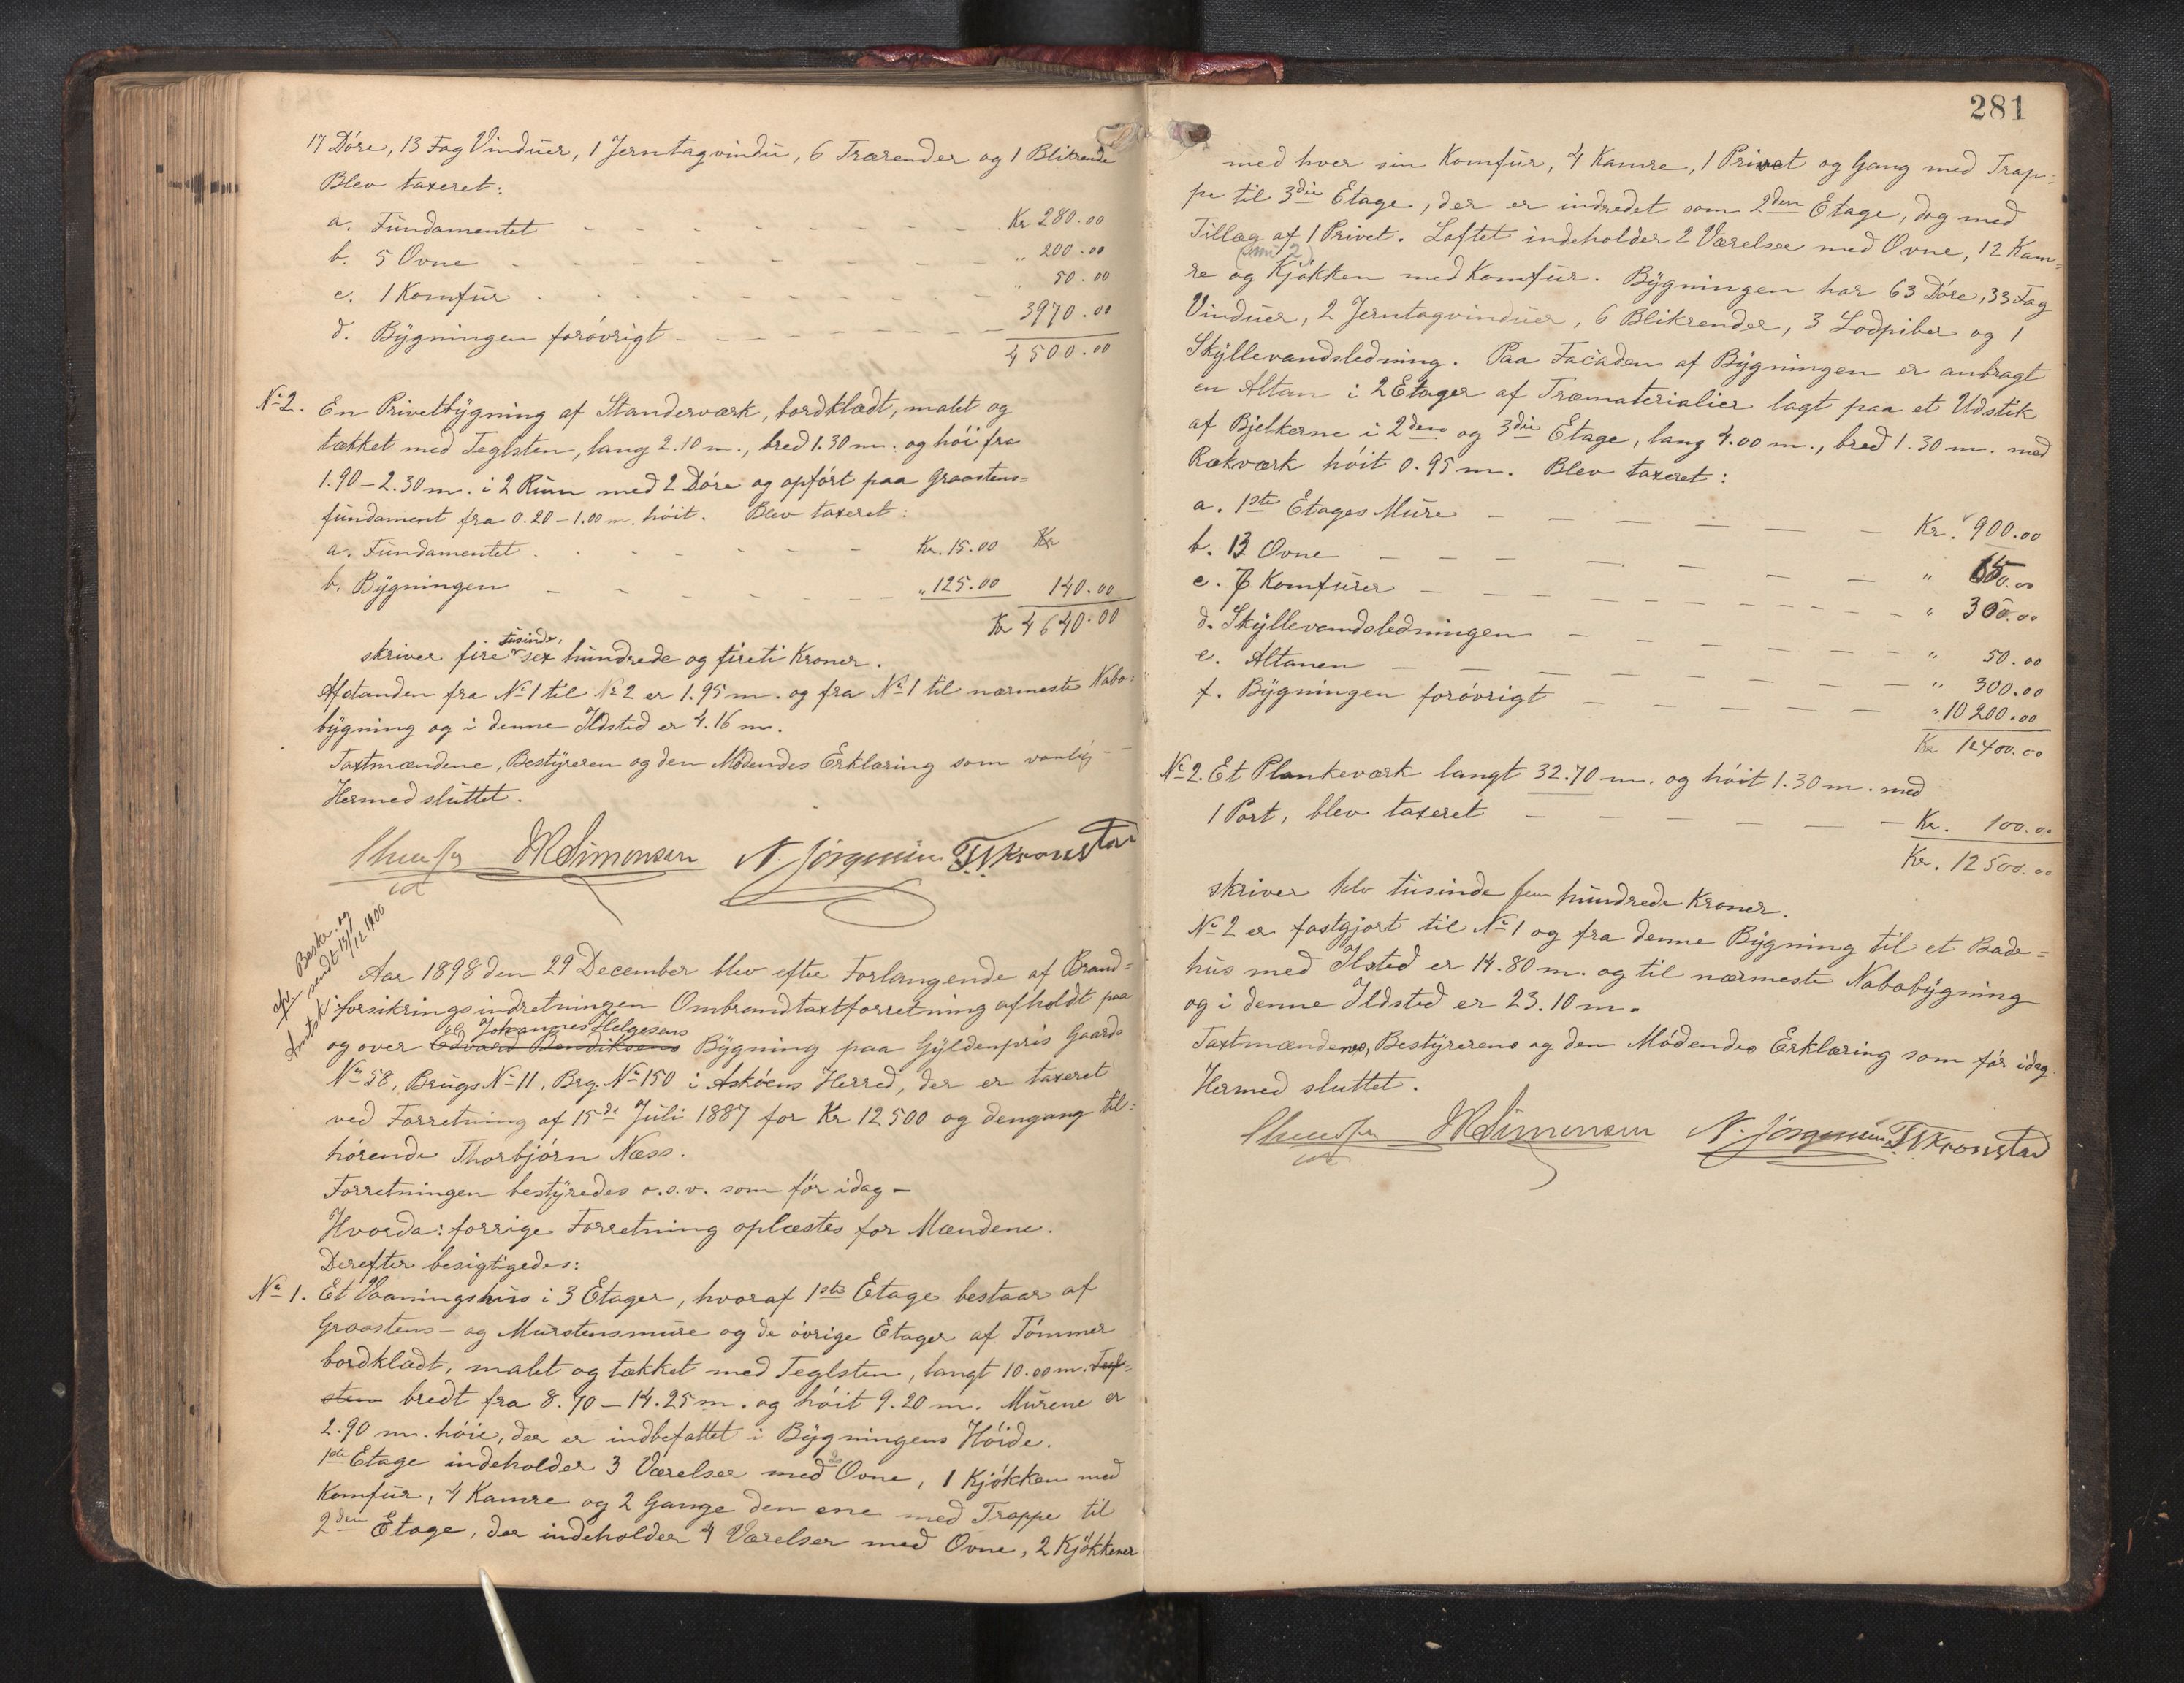 17 Döre, 13 Fag Vinduer, 1 Jerntagvindu, 6 Trærender og 1 Blikrende
Blev taxeret:
a. Fundamentet - - - - - - - Kr 280.00
b. 5 Ovne - - - - - - - " 200.00
c. 1 Komfur - - - - - - - " 50.00
d. Bygningen forövrigt - - - - - 3970.00
4500.00
No 2. En Privetbygning af Standerværk, bordklædt, malet og
tækket med Teglsten, lang 2.10 m., bred 1.30 m. og höi fra
1.90 - 2.30 m. i 2 Rum med 2 Döre og opfört paa Graastens=
fundament fra 0.20 - 1.00 m. höit. Blev taxeret:
a. Fundamentet - - - - - Kr. 15.00 Kr
b. Bygningen - - - - - " 125.00 140.00
Kr 4640.00
skriver fire tusinde, sex hundrede og fireti Kroner.
Afstanden fra No 1 til No 2 er 1.95 m. og fra No 1 til nærmeste Nabo=
bygning og i denne Ildsted er 4.16 m.
Taxtmændene, Bestyreren og den Mödendes Erklæring som vanlig -
Hermed sluttet.
JRSimonsen N. Jörgensen T. Kronstad
Beskr. og
sendt 13/12 1900
Aar 1898 den 29 December blev efter Forlangende af Brand=
forsikringsindretningen Ombrandtaxtforretning afholdt paa
og over Edvard Bendiksens Johannes Helgesens Bygning paa Gyldenpris Gaards
No 58, Brugs No 11, Brg. No 150 i Asköens Herred, der er taxeret
ved Forretning af 15de Juli 1887 for Kr 12500 og dengang til=
hörende Thorbjörn Næss.
Forretningen bestyredes o.s.v. som för idag -
Hvorda: forrige Forretning oplæstes for Mændene.
Derefter besigtigedes:
No 1. Et Vaaningshus i 3 Etager, hvoraf 1ste Etage bestaar af
Graastens- og Murstensmure og de övrige Etager af Tömmer
bordklædt, malet og tækket med Teglsten, langt 10.00 m. Tegl=
sten bredt fra 8.70 - 14.25 m. og höit 9.20 m. Murene er
2.90 m. höie, der er indbefattet i Bygningens Höide.
1ste Etage indeholder 3 Værelser med 2 Ovne, 1 Kjökken med
Komfur, 4 Kamre og 2 Gange den ene med Trappe til
2den Etage, der indeholder 4 Værelser med Ovne, 2 Kjökkener
281
med hver sin Komfur, 4 Kamre, 1 Privet og Gang med Trap=
pe til 3die Etage, der er indredet som 2den Etage, dog med
Tillæg af 1 Privet. Loftet indeholder 2 Værelser med Ovne, 12 Kam=
re og Kjökken med Komfur. Bygningen har 63 Döre, 33 Fag
Vinduer, 2 Jerntagvinduer, 6 Blikrender, 3 Lodpiber og 1
Skyllevandsledning. Paa Facaden af Bygningen er anbragt
en Altan i 2 Etager af Træmaterialier lagt paa et Udstik
af Bjelkerne i 2den og 3die Etage, lang 4.00 m., bred 1.30 m. med
Rækværk höit 0.95 m. Blev taxeret:
a. 1ste Etages Mure - - - - - Kr. 900.00
b. 13 Ovne - - - - - - " 650.00
c. 7 Komfurer - - - - - - " 300.00
d. Skyllevandsledningen - - - - " 50.00
e. Altanen - - - - - - " 300.00
f. Bygningen forövrigt - - - - " 10200.00
Kr 12400.00
No 2. Et Plankeværk langt 32.70 m. og höit 1.30 m. med
1 Port, blev taxeret - - - - - Kr. 100.00
Kr. 12500.00
skriver tolv tusinde fem hundrede Kroner.
No 2 er fastgjort til No 1 og fra denne Bygning til et Bade=
hus med Ilsted er 14.80 m. og til nærmeste Nabobygning
og i denne Ildsted er 23.10 m.
Taxtmændenes, Bestyrerens og den Mödendes Erklæring som för idag.
Hermed sluttet.
JRSimonsen N. Jörgensen T. Kronstad